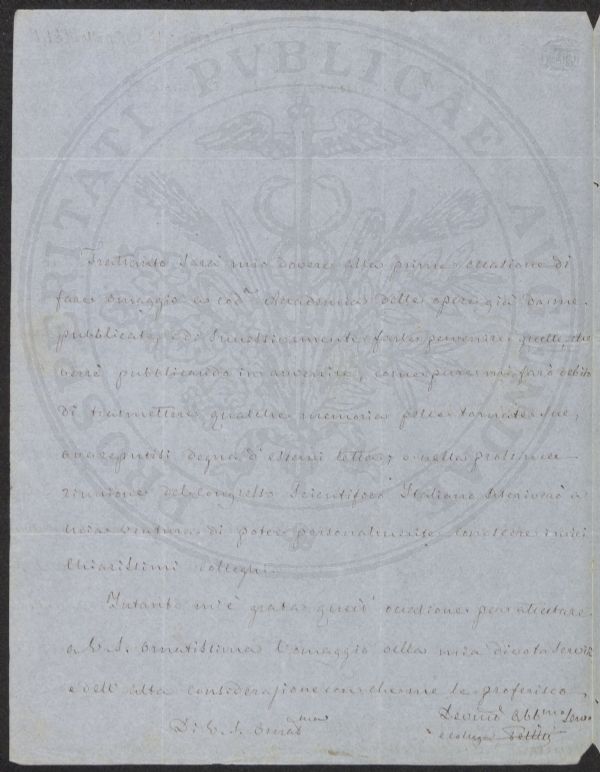 PROSPERITATI PVBLICAE AVGENDAE
Frattanto sarà mio dovere alla prima occasione di
fare omaggio a cod.ª Accademia delle opere già da me
pubblicate, e di successivamente farle pervenire quelle, che
verrò pubblicando in avvenire, come pure mi farò debito
di trasmettere qualche memoria
ove reputisi degna d'esservi letta, e nella prossima
riunione del Congresso Scientifico Italiano ascriverò a
mia ventura di poter personalmente conoscere i miei
Chiarissimi colleghi.
Intanto m'è grata quest'occasione per attestare
a V. S. Ornatissima l'omaggio della mia divota servitù
e dell'alta considerazione con che me le proferisco
Di V. S. Ornat.ma
Devmo Obb.mo Servo
e collega Petitti